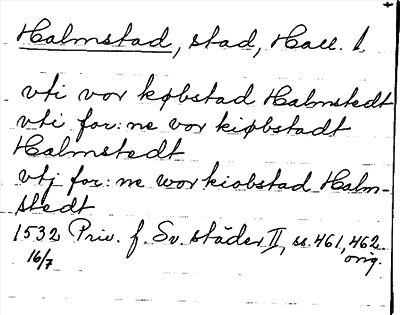 Halmstad, stad, Hall. 1
vti vor købstad Halmstedt
vti for:ne vor kiøbstadt
Halmstedt
vtj for:ne wor kiobstad Halm-
stedt
1532 Priv. f. Sv. städer II, ss. 461, 462
16/7 orig.